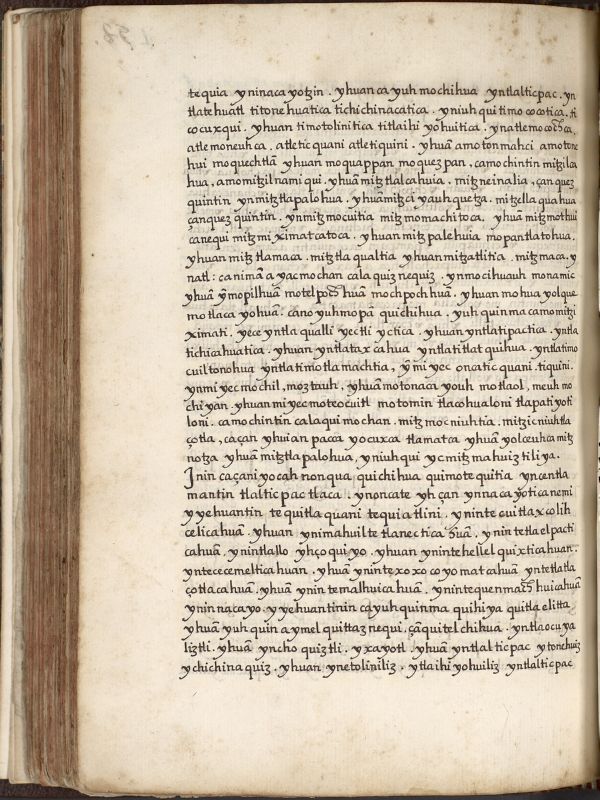 tequia ynin aca yotzin . yhuan ca yuh mochihua yntlalticpac . yn
tlatehuatl titonehuatica tichichinacatica . yniuh qui timo cocotica . ti
cocuxqui . yhuan timotolinitica titlaihi yohuitica . ynatle mo cochca,
atle moneuhca . atle tic quani atle tiquini . yhuā amo ton mahci amo tone
hui moquechtlā yhuan moquappan moquezpan , camochintin mitzilca
hua , amo mitzilnamiqui . yhuā mitztlalcahuia . mitzneinalia , çan quez
quintin yn mitztlapalohua . yhuā mitzci yauhquetza . mitzellaquahua
çanquez quintin . yn mitzmocuitia mitzmomachitoca . yhuā mitzmothui
canequi mitzmiximatcatoca . yhuan mitzpalehuia mopantlatohua .
yhuan mitztlamaca . mitztlaqualtia yhuan mitzatlitia . mitzmaca . y
natl : canimā ayac mochan calaquiznequiz . ynmocihuauh monamic
yhuā ȳmopilhuā motelpochhuā mochpochhuā . yhuan mohuayolque
motlacayohuā . çano yuh mopā quichihua . yuhquinma camo mitzi
ximati . yece yntla qualli yectli yctica . yhuan yntlatipactica . yntla
tichicahuatica . yhuan yntlataxcahua yntlatitlatquihua . yntlatimo
cuiltonohua yntlatimotlamachtia , ȳmiyec oncatic quani . tiquini .
ynmiyec mochil , moztauh . yhuā motonaca youh motlaol , meuh mo
chiyan . yhuan miyec moteocuitl motomin tlacohualoni tlapatiyoti
loni . camochintin calaqui mochan . mitzmocniuhtia . mitzicniuhtla
çotla , caçan yhuian pacca yocuxca tlamatca yhuā yolceuhca mitz
notza yhuā mitztlapalohua , yniuhqui yc mitzmahuiztiliya .
Inin caçaniyocah nonqua quichihua quimotequitia yncentla
mantin tlalticpac tlaca . ynoncate yhçan ynnacayotica nemi
yyehuantin tequitlaquani tequiatlini . ynintecuitlaxcolih
celicahuā . yhuan ynimahuiltetlanectica huā . ynintetlaelpacti
cahuā . ynintlallo yhçoquiyo . yhuan ynintehellelquixticahuan .
yntececemelticahuan . yhuā ynintexoxocoyomatcahuā yntetlatla
çotlacahuā . yhuā yninтemalhuicahuā . ynintequenmachhuicahuā
ynin nacayo . yyehuantinin cayuhquinma quihiya quitlaelitta
yhuā yuhquin aymelquittaznequi , çā quitelchihua . yntlaocuya
liztli . yhuā yncho quiztli . yxayotl . yhuā yntlalticpac ytonehuiz
ychichinaquiz . yhuan ynetoliniliz . ytlaihiyohuiliz yntlalticpac